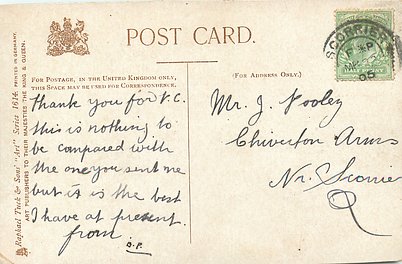 POST CARD.
FOR POSTAGE, IN THE UNITED KINGDOM ONLY,
THIS SPACE MAY BE USED FOR CORRESPONDENCE.
(FOR ADDRESS ONLY.)
Thank you for V.C.
this is nothing to
be compared with
the one you sent me
but it is the best
I have at present.
from
Mr. J. Pooley
Chiverton Arms
Nr. Scorrier
SCORRIER
05
Raphael Tuck & Sons' "Art" Series 1614. PRINTED IN GERMANY.
ART PUBLISHERS TO THEIR MAJESTIES THE KING & QUEEN.